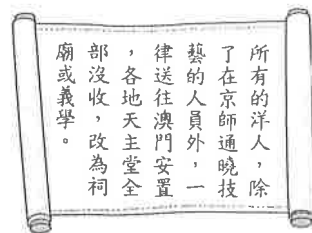 所有的洋人，除
了在京師通曉技
藝的人員外，一
律送往澳門安置
，各地天主堂全
部沒收，改為祠
廟或義學。